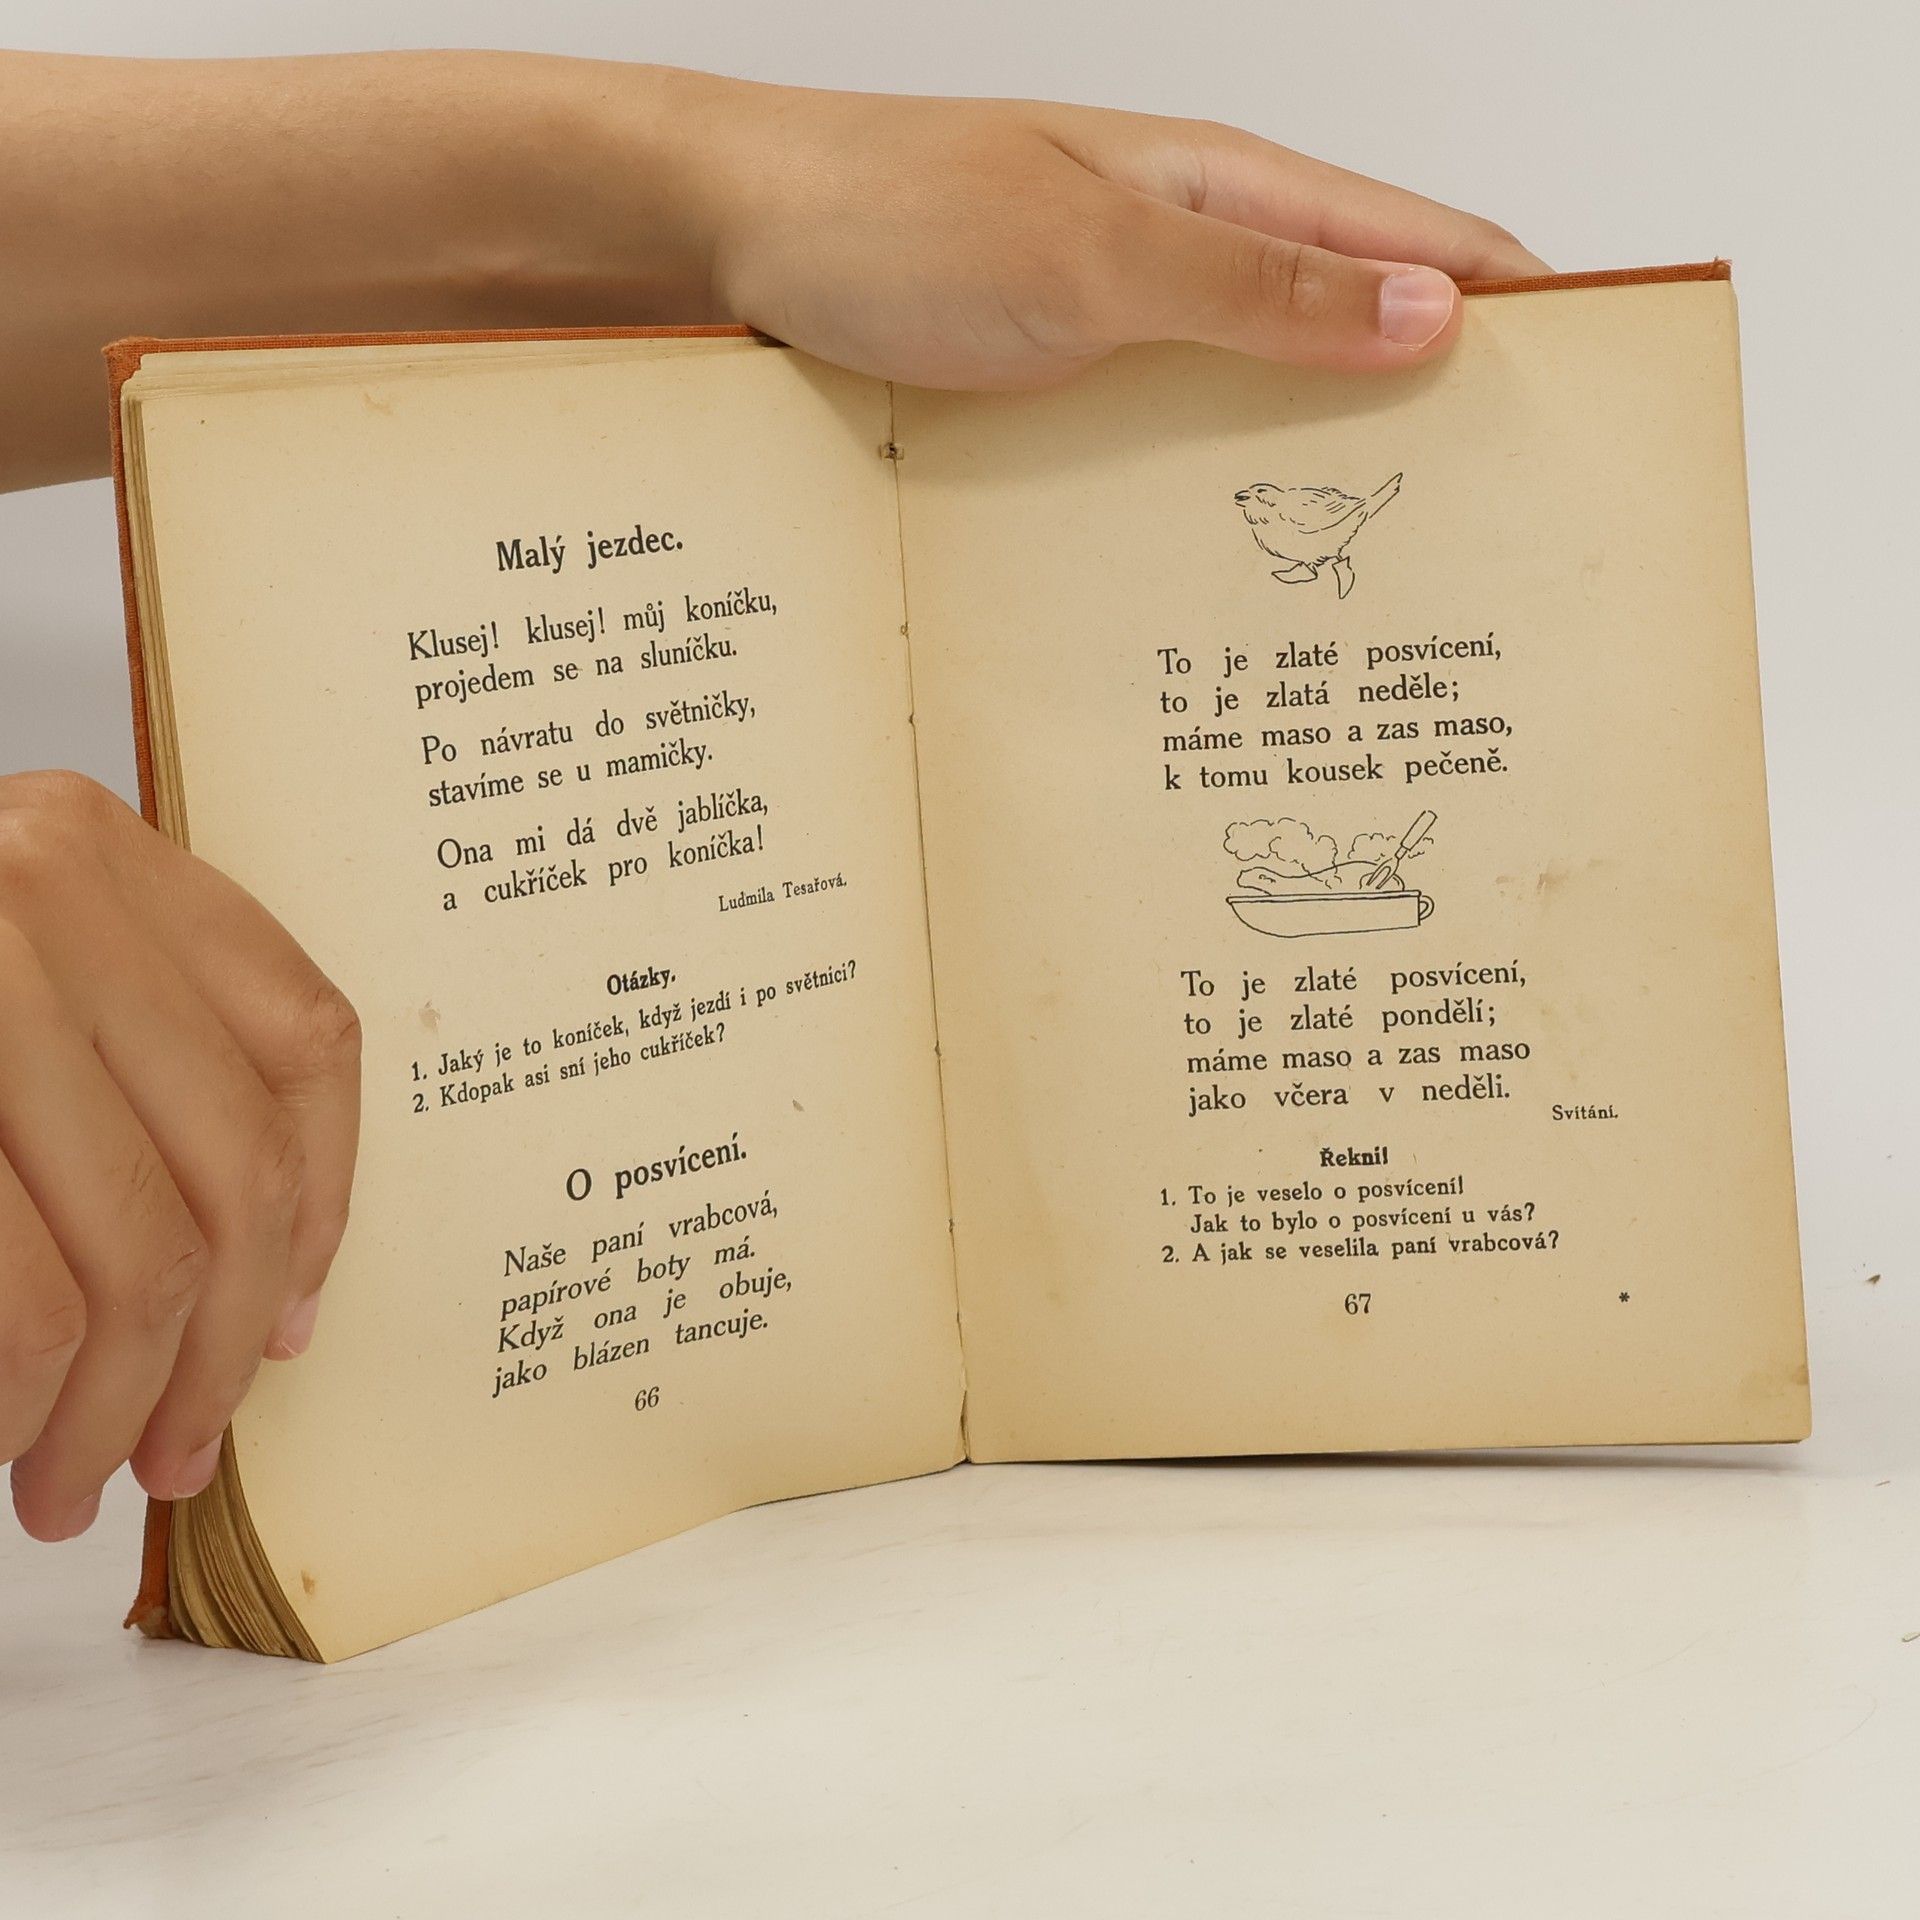 Malý jezdec.
Klusej! klusej! můj koníčku,
projedem se na sluníčku.
Po návratu do světničky,
stavíme se u mamičky.
Ona mi dá dvě jablíčka,
a cukříček pro koníčka!
Ludmila Tesařová.
Otázky.
1. Jaký je to koníček, když jezdí i po světnici?
2. Kdopak asi sní jeho cukříček?
O posvícení.
Naše paní vrabcová,
papírové boty má.
Když ona je obuje,
jako blázen tancuje.
66
To je zlaté posvícení,
to je zlatá neděle;
máme maso a zas maso,
k tomu kousek pečeně.
To je zlaté posvícení,
to je zlaté pondělí;
máme maso a zas maso
jako včera v neděli.
Svítání.
Řekni!
1. To je veselo o posvícení!
Jak to bylo o posvícení u vás?
2. A jak se veselila paní vrabcová?
67 *